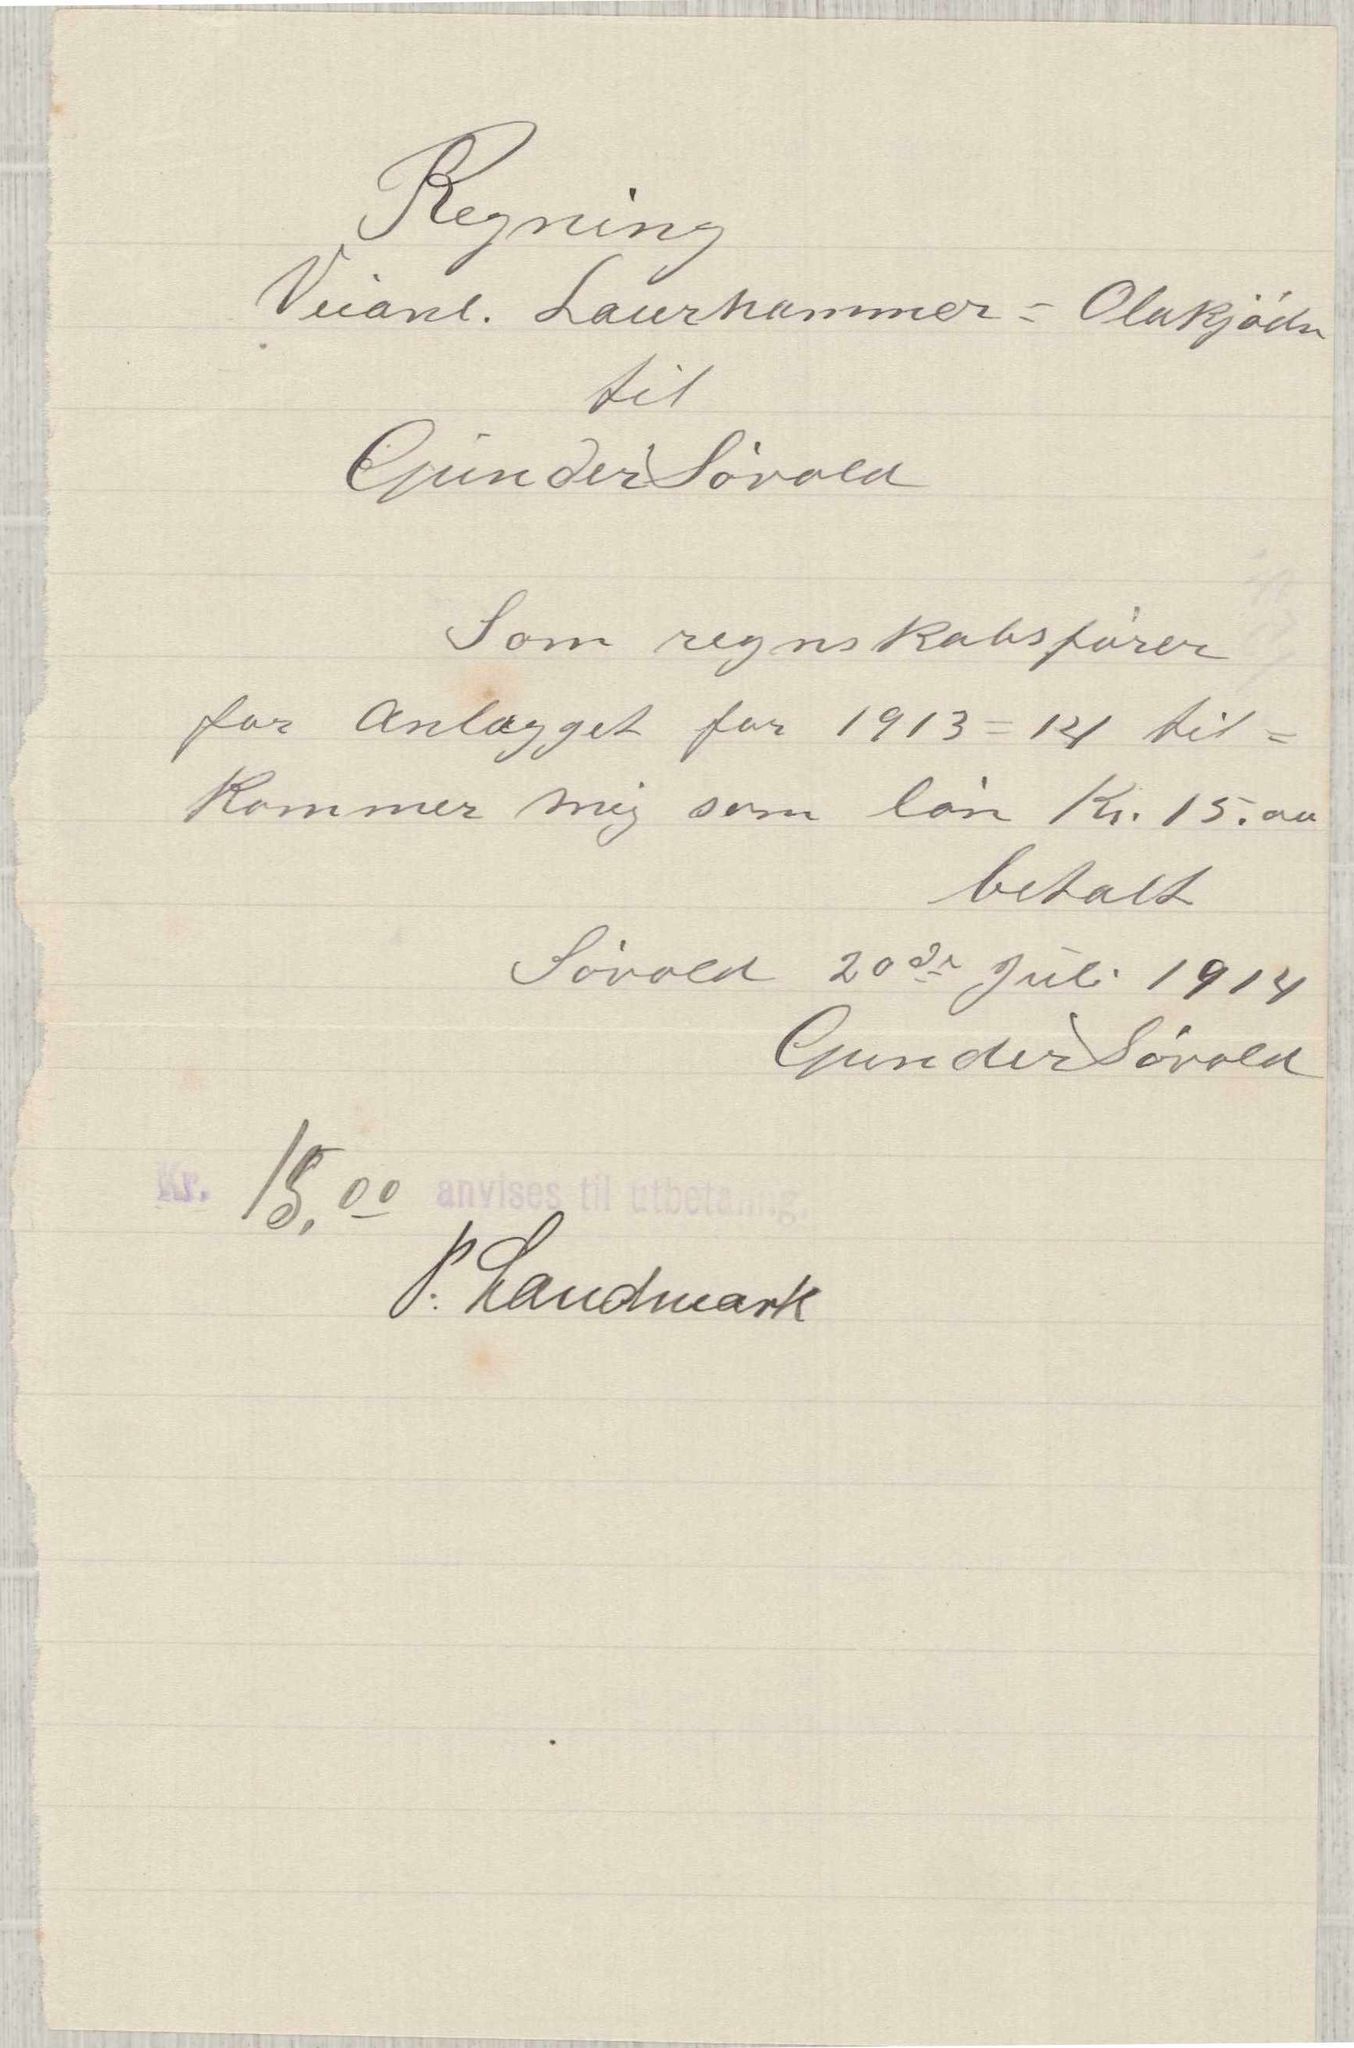 Regning
Veianl. Laurhammer = Olakjödn
til
Gunder Sörold
Som regnskabsfører
for Anlægget for 1913 = 14 til =
kommer mig som lön Kr. 15.00
betalt
Sörold 20de Juli 1914
Gunder Sörold
Kr. 15,00 anvises til utbetaling.
P. Landmark